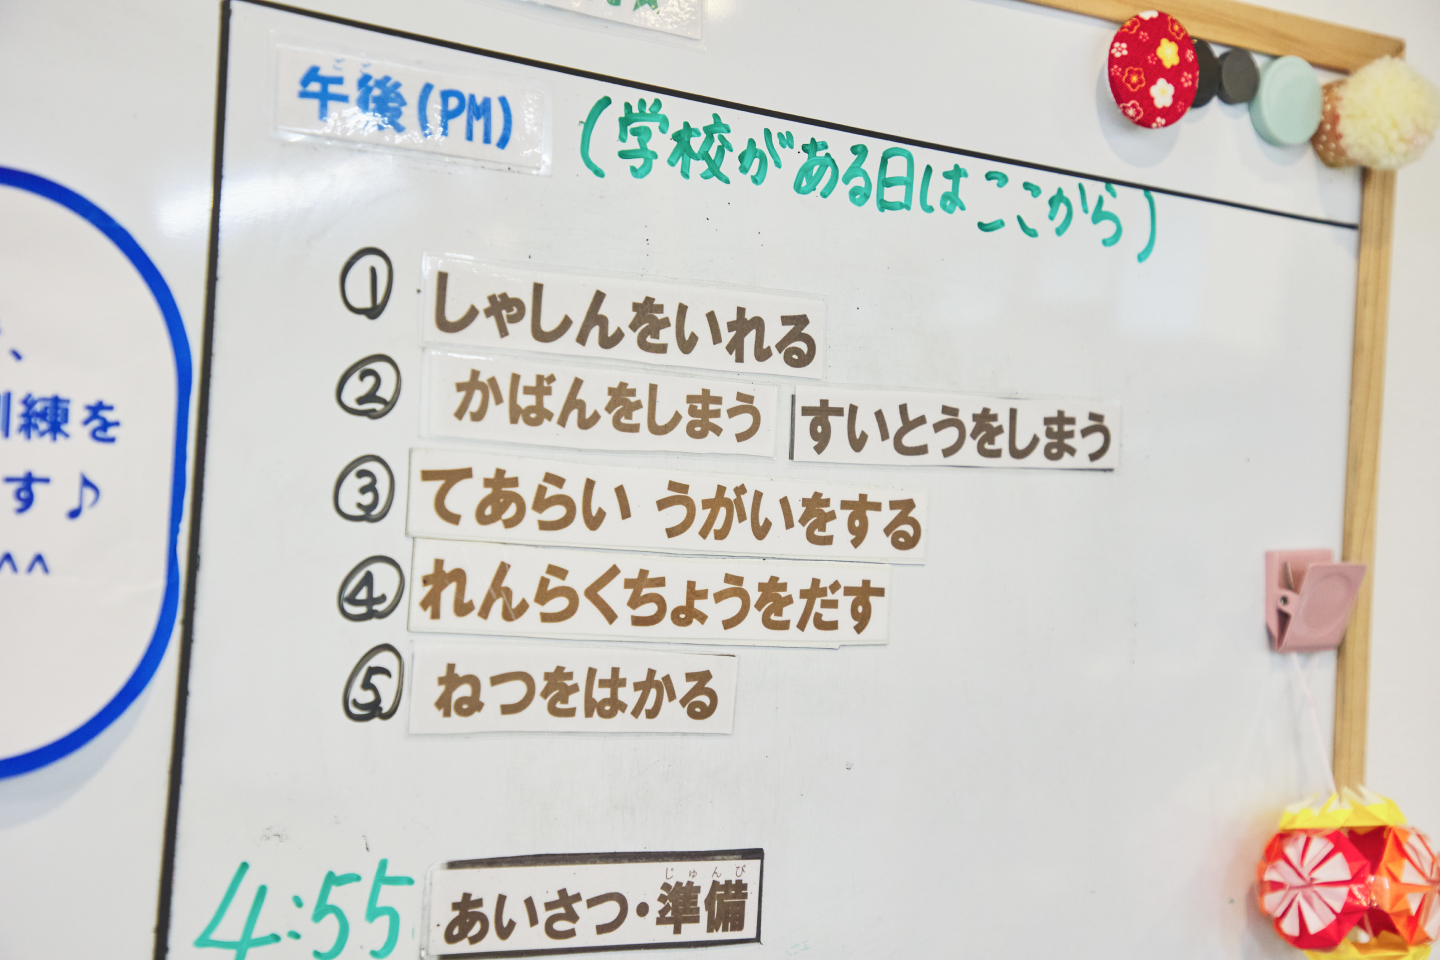 午後(PM) (学校がある日はここから)
① しゃしんをいれる
② かばんをしまう すいとうをしまう
③ てあらい うがいをする
④ れんらくちょうをだす
⑤ ねつをはかる
4:55 あいさつ・準備
じゅんび
練を
す♪
^^